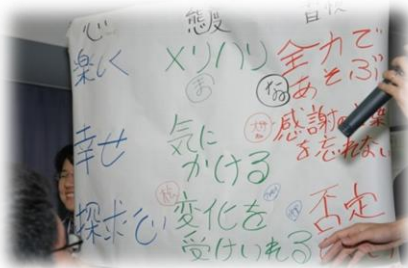 心
楽しく
幸せ
探求心
態度
メリハリ
気に
かける
変化を
受けいれる
全力で
あそぶ
感謝の言葉
を忘れない
否定